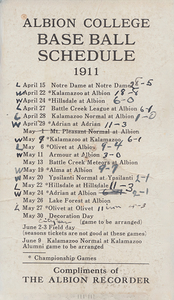 ALBION COLLEGE
BASE BALL
SCHEDULE
1911
L April 15 Notre Dame at Notre Dame
W April 22 *Kalamazoo at Albion
W April 24 *Hillsdale at Albion 6-0
L April 27 Battle Creek League at Albion
L April 28 Kalamazoo Normal at Albion
W April 29 *Adrian at Adrian 11-3
May Mt. Pleasant Normal at Albion
May 5 Kalamazoo at Kalamazoo 6-1
L May 6 *Olivet at Albion
W May 11 Armour at Albion 3-0
May 13 Battle Creek Meteors at Albion
W May 19 *Alma at Albion
W May 20 Ypsilanti Normal at Ypsilanti 2-1
May 22 *Hillsdale at Hillsdale 11-3
W May 24 *Adrian at Albion
May 26 Lake Forest at Albion
L May 27 *Olivet at Olivet
May 30 Decoration Day
(game to be arranged)
June 2-3 Field day
(seasons tickets are not good at these games)
June 9 Kalamazoo Normal at Kalamazoo
Alumni game to be arranged
* Championship Games
Compliments of
THE ALBION RECORDER